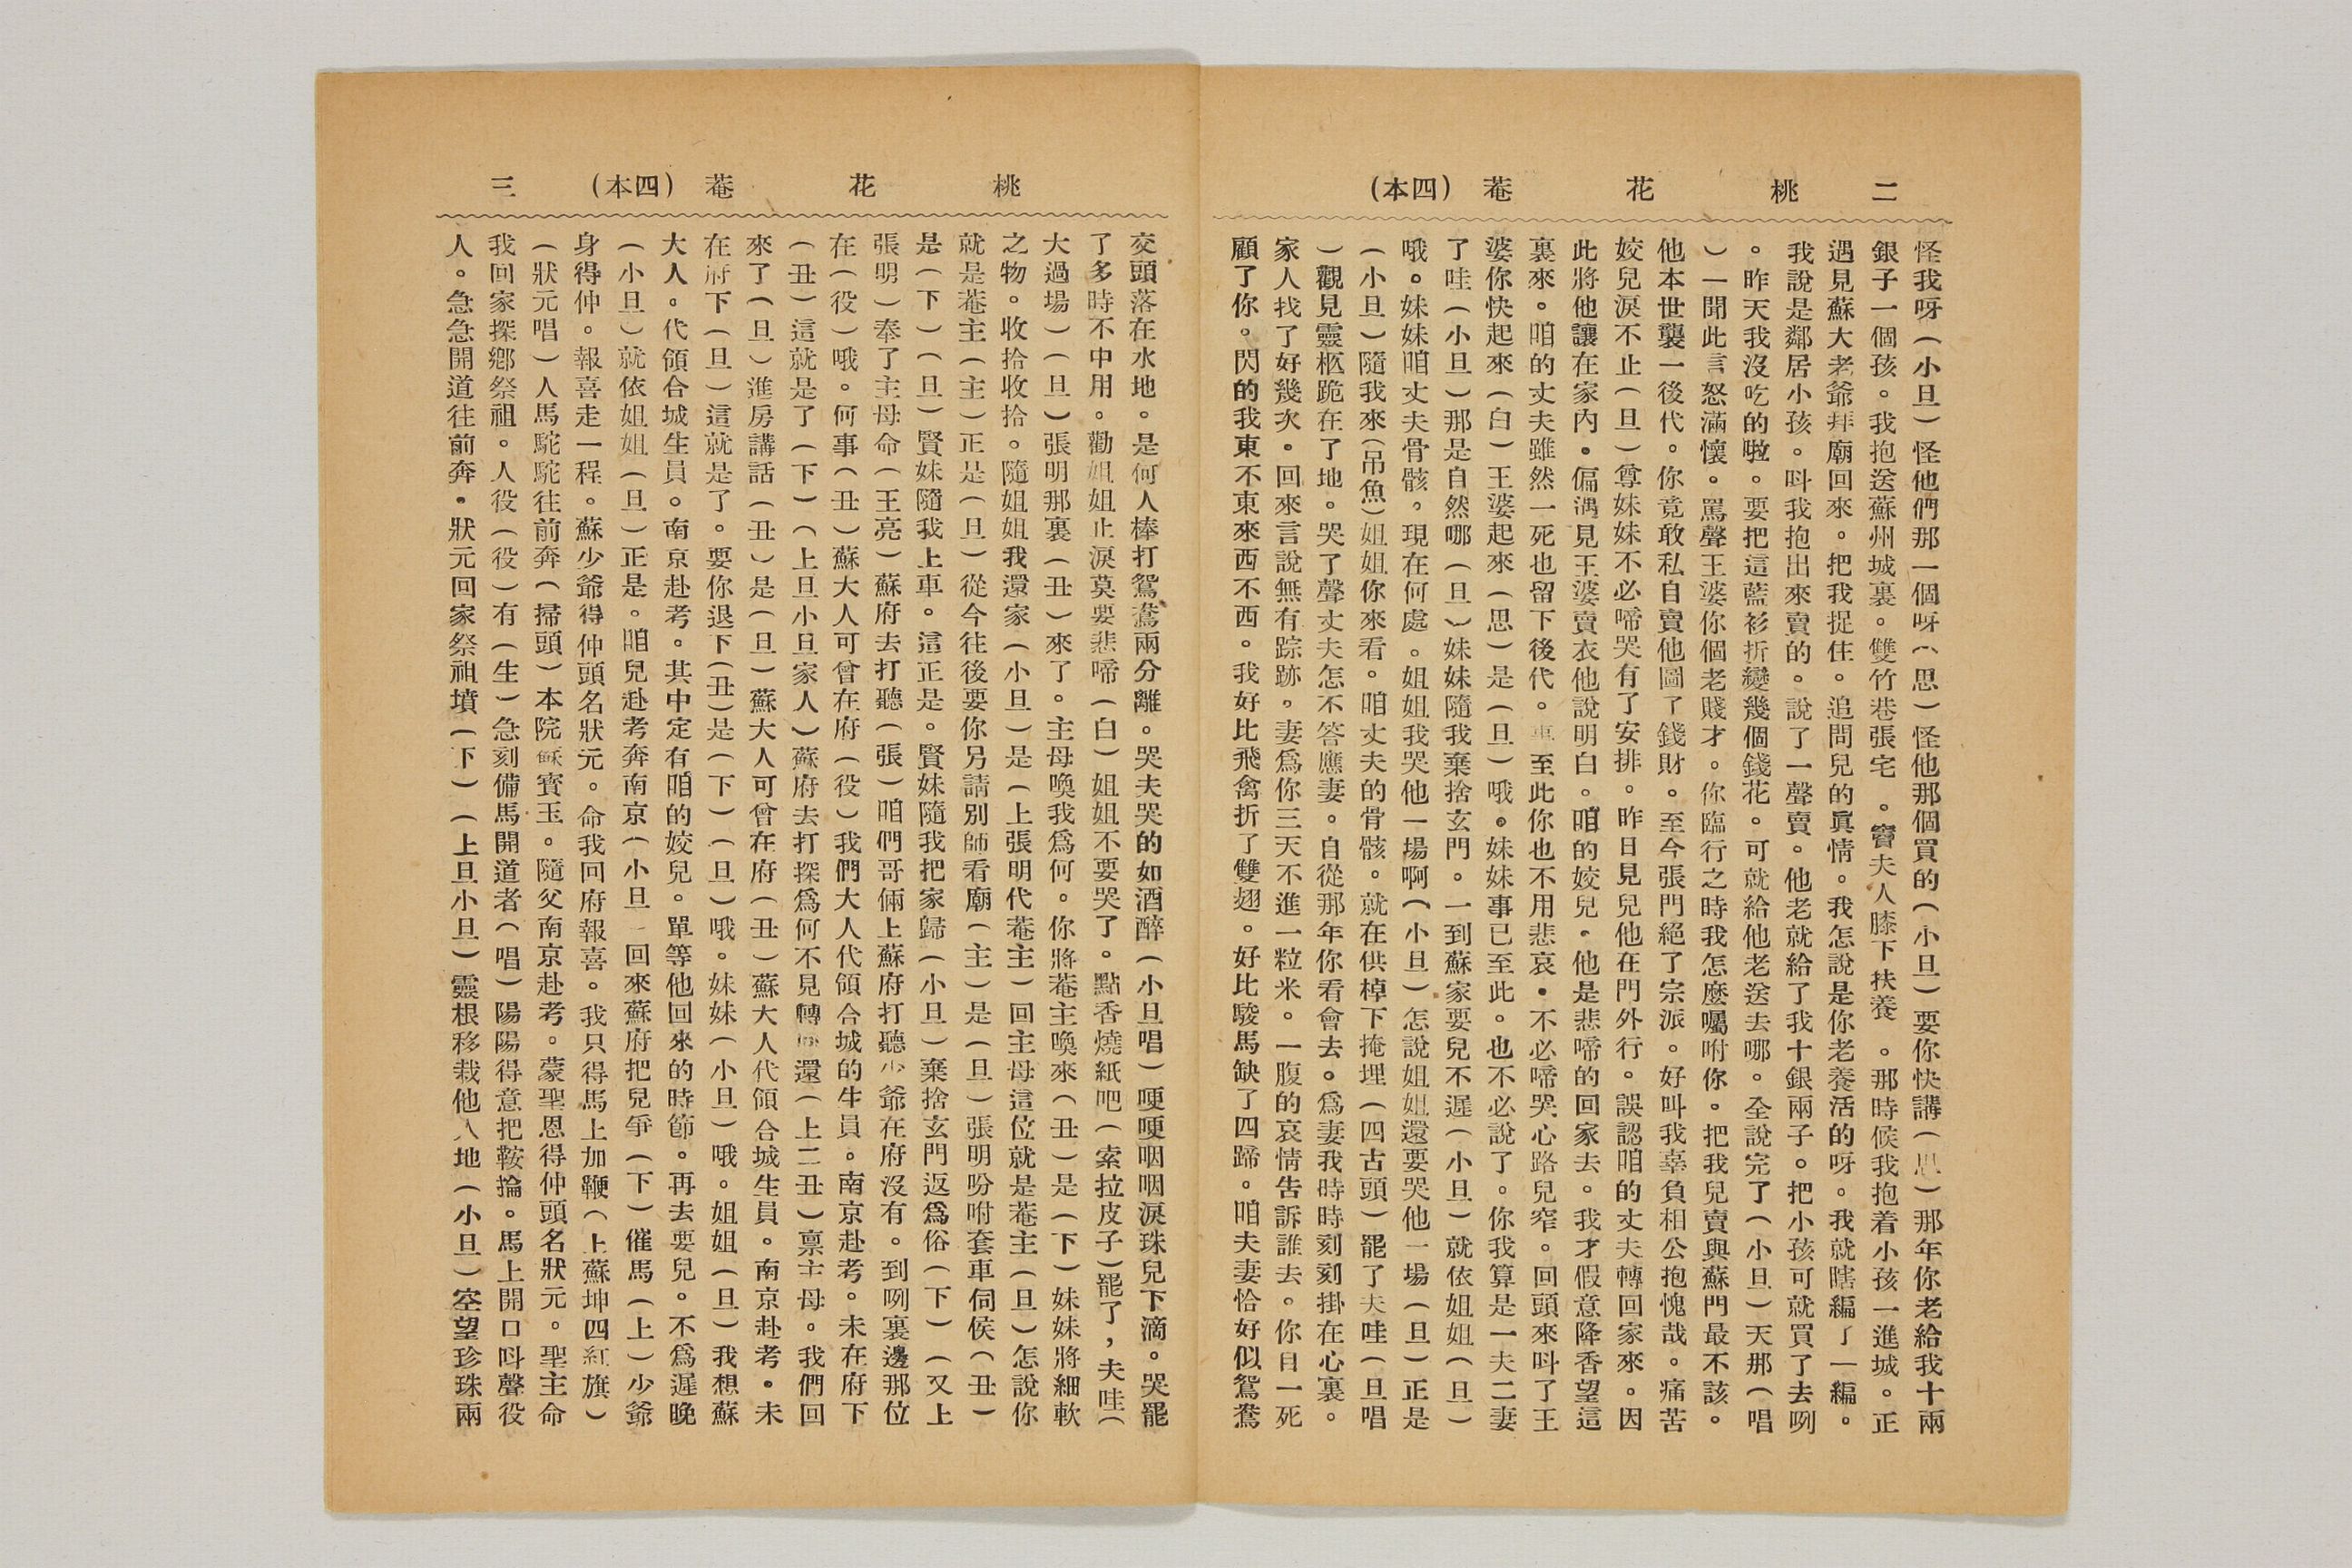 二　桃花菴（四本）
怪我呀（小旦）怪他們那一個呀（思）怪他那個買的（小旦）要你快講（思）那年你老給我十兩
銀子一個孩。我抱送蘇州城裏。雙竹巷張宅。竇夫人膝下扶養。那時候我抱着小孩一進城。正
遇見蘇大老爺拜廟回來。把我捉住。追問兒的眞情。我怎說是你老養活的呀。我就瞎編了一編。
我說是鄰居小孩。呌我抱出來賣的。說了一聲賣。他老就給了我十銀兩子。把小孩可就買了去咧
。昨天我沒吃的啦。要把這藍衫折變幾個錢花。可就給他老送去哪。全說完了（小旦）天那（唱
）一聞此言怒滿懷。罵聲王婆你個老賤才。你臨行之時我怎麽囑咐你。把我兒賣與蘇門最不該。
他本世襲一後代。你竟敢私自賣他圖了錢財。至今張門絕了宗派。好叫我辜負相公抱愧哉。痛苦
姣兒淚不止（旦）尊妹妹不必啼哭有了安排。昨日見兒他在門外行。誤認咱的丈夫轉回家來。因
此將他讓在家內。偏遇見王婆賣衣他說明白。咱的姣兒。他是悲啼的回家去。我才假意降香望這
裏來。咱的丈夫雖然一死也留下後代。事至此你也不用悲哀。不必啼哭心路兒窄。回頭來呌了王
婆你快起來（白）王婆起來（思）是（旦）哦。妹妹事已至此。也不必說了。你我算是一夫二妻
了哇（小旦）那是自然哪（旦）妹妹隨我棄捨玄門。一到蘇家要兒不遲（小旦）就依姐姐（旦）
哦。妹妹咱丈夫骨骸。現在何處。姐姐我哭他一場啊（小旦）怎說姐姐還要哭他一場（旦）正是
（小旦）隨我來（吊魚）姐姐你來看。咱丈夫的骨骸。就在供棹下掩埋（四古頭）罷了夫哇（旦唱
）觀見靈柩跪在了地。哭了聲丈夫怎不答應妻。自從那年你看會去。爲妻我時時刻刻掛在心裏。
家人找了好幾次。回來言說無有踪跡。妻爲你三天不進一粒米。一腹的哀情告訴誰去。你日一死
顧了你。閃的我東不東來西不西。我好比飛禽折了雙翅。好比駿馬缺了四蹄。咱夫妻恰好似鴛鴦
桃花菴（四本）　三
交頭落在水地。是何人棒打鴛鴦兩分離。哭夫哭的如酒醉（小旦唱）哽哽咽咽淚珠兒下滴。哭罷
了多時不中用。勸姐姐止淚莫要悲啼（白）姐姐不要哭了。點香燒紙吧（索拉皮子）罷了，夫哇（
大過場）（旦）張明那裏（丑）來了。主母喚我爲何。你將菴主喚來（丑）是（下）妹妹將細軟
之物。收拾收拾。隨姐姐我還家（小旦）是（上張明代菴主）回主母這位就是菴主（旦）怎說你
就是菴主（主）正是（旦）從今往後要你另請別師看廟（主）是（旦）張明吩咐套車伺侯（丑）
是（下）（旦）賢妹隨我上車。這正是。賢妹隨我把家歸（小旦）棄捨玄門返爲俗（下）（又上
張明）奉了主母命（王亮）蘇府去打聽（張）咱們哥倆上蘇府打聽少爺在府沒有。到咧裏邊那位
在（役）哦。何事（丑）蘇大人可曾在府（役）我們大人代領合城的生員。南京赴考。未在府下
（丑）這就是了（下）（上旦小旦家人）蘇府去打探爲何不見轉還（上二丑）禀主母。我們回
來了（旦）進房講話（丑）是（旦）蘇大人可曾在府（丑）蘇大人代領合城生員。南京赴考。未
在府下（旦）這就是了。要你退下（丑）是（下）（旦）哦。妹妹（小旦）哦。姐姐（旦）我想蘇
大人。代領合城生員。南京赴考。其中定有咱的姣兒。單等他回來的時節。再去要兒。不爲遲晚
（小旦）就依姐姐（旦）正是。咱兒赴考奔南京（小旦）回來蘇府把兒爭（下）催馬（上）少爺
身得仲。報喜走一程。蘇少爺得仲頭名狀元。命我回府報喜。我只得馬上加鞭（上蘇坤四紅旗）
（狀元唱）人馬駝駝往前奔（掃頭）本院蘇寳玉。隨父南京赴考。蒙聖恩得仲頭名狀元。聖主命
我回家探鄉祭祖。人役（役）有（生）急刻備馬開道者（唱）陽陽得意把鞍掄。馬上開口呌聲役
人。急急開道往前奔。狀元回家祭祖墳（下）（上旦小旦）靈根移栽他人地（小旦）空望珍珠兩